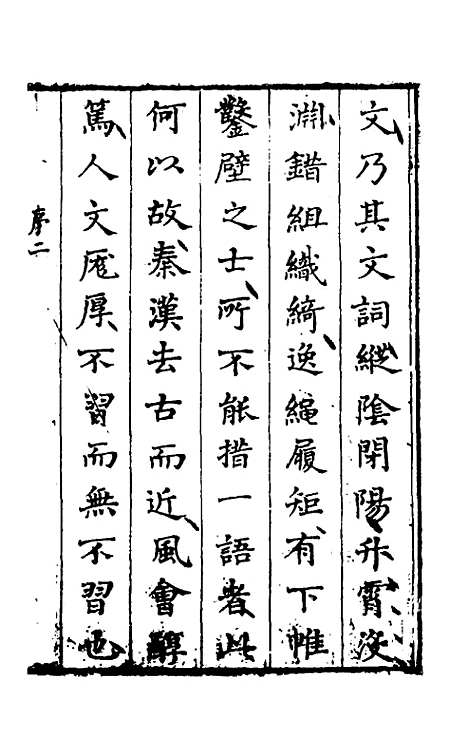 文乃其文詞縱陰閉陽升霄没
淵錯組織綺逸繩履矩有下帷
鑿壁之士所不能措一語者此
何以故秦漢去古而近風會醇
篤人文厖厚不習而無不習也
序二